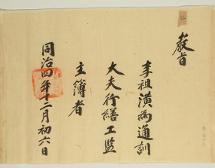 敎旨
李祖潢爲通訓
大夫行繕工監
主簿者
同治四年十二月初六日